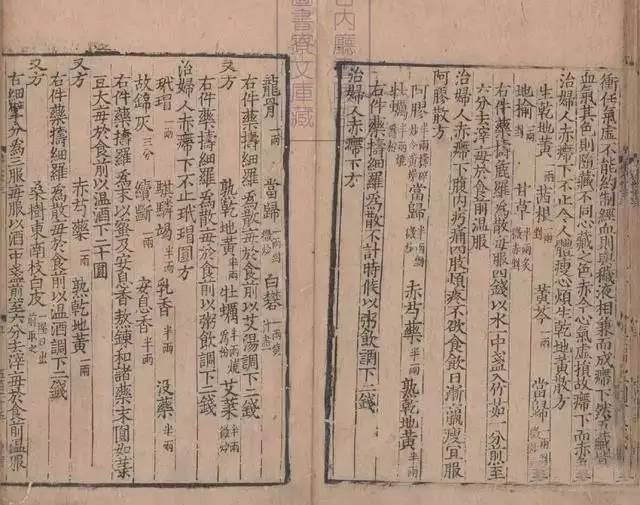 衝任氣虛不能約制經血則與穢液相兼而成㿃下然五藏皆
血氣其色則隨藏不同心藏之色赤令心氣虛損故㿃下而赤
治婦人赤㿃下不止令人體瘦心煩生乾地黃散方
生乾地黃一兩 茜根一兩剉 黃芩一兩 當歸一兩剉微炒
地榆一兩剉 甘草半兩炙微赤剉
右件藥擣麤羅為散每服四錢以水一中盞入竹茹一分煎至
六分去滓每於食前溫服
治婦人赤㿃下腹內㽲痛四肢煩疼不欲食飲日漸羸瘦宜服
阿膠散方
阿膠半兩擣碎炒令黃燥 當歸半兩剉微炒 赤芍藥半兩 熟乾地黃半兩
牡蠣半兩燒為粉
右件藥擣細羅為散不計時候以粥飲調下二錢
治婦人赤㿃下方
龍骨一兩 當歸一兩剉微炒 白礬一兩燒汁盡
右件藥擣細羅為散每於食前以粥飲調下二錢
又方
熟乾地黃一兩半 牡蠣半兩燒為粉 艾葉半兩微炒
右件藥擣細羅為散每於食前以艾湯調下二錢
治婦人赤㿃下不止玳瑁圓方
玳瑁一兩 麒麟竭半兩 乳香半兩 沒藥半兩
故錦灰三分 續斷一兩 安息香半兩
右件藥擣羅為末以蜜及安息香熬鍊和諸藥末圓如菉
豆大每於食前以溫酒下二十圓
又方
赤芍藥一兩 熟乾地黃一兩
右件藥擣細羅為散每於食前以溫酒調下二錢
又方
桑樹東南枝白皮一握日出前取之
右細擘分為三服每服以酒一中盞煎至六分去滓每於食前溫服
宮內廳
圖書寮文庫藏